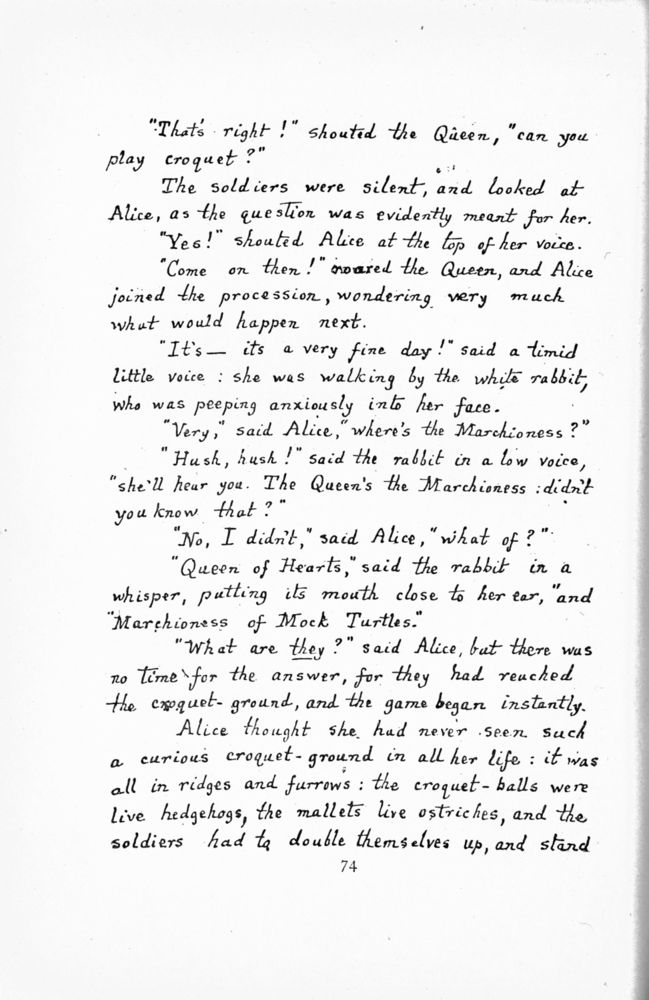 "That's right!" shouted the Queen, "can you
play croquet?"
The soldiers were silent, and looked at
Alice, as the question was evidently meant for her.
"Yes!" shouted Alice at the top of her voice.
"Come on then!" roared the Queen, and Alice
joined the procession, wondering very much
what would happen next.
"It's — its a very fine day!" said a timid
little voice : she was walking by the white rabbit,
who was peeping anxiously into her face.
"Very," said Alice, "where's the Marchioness?"
"Hush, hush!" said the rabbit in a low voice,
"she'll hear you. The Queen's the Marchioness : didn't
you know that?"
"No, I didn't," said Alice, "what of?"
"Queen of Hearts," said the rabbit in a
whisper, putting its mouth close to her ear, "and
Marchioness of Mock Turtles."
"What are they?" said Alice, but there was
no time for the answer, for they had reached
the croquet-ground, and the game began instantly.
Alice thought she had never seen such
a curious croquet-ground in all her life : it was
all in ridges and furrows : the croquet-balls were
live hedgehogs, the mallets live ostriches, and the
soldiers had to double themselves up, and stand
74